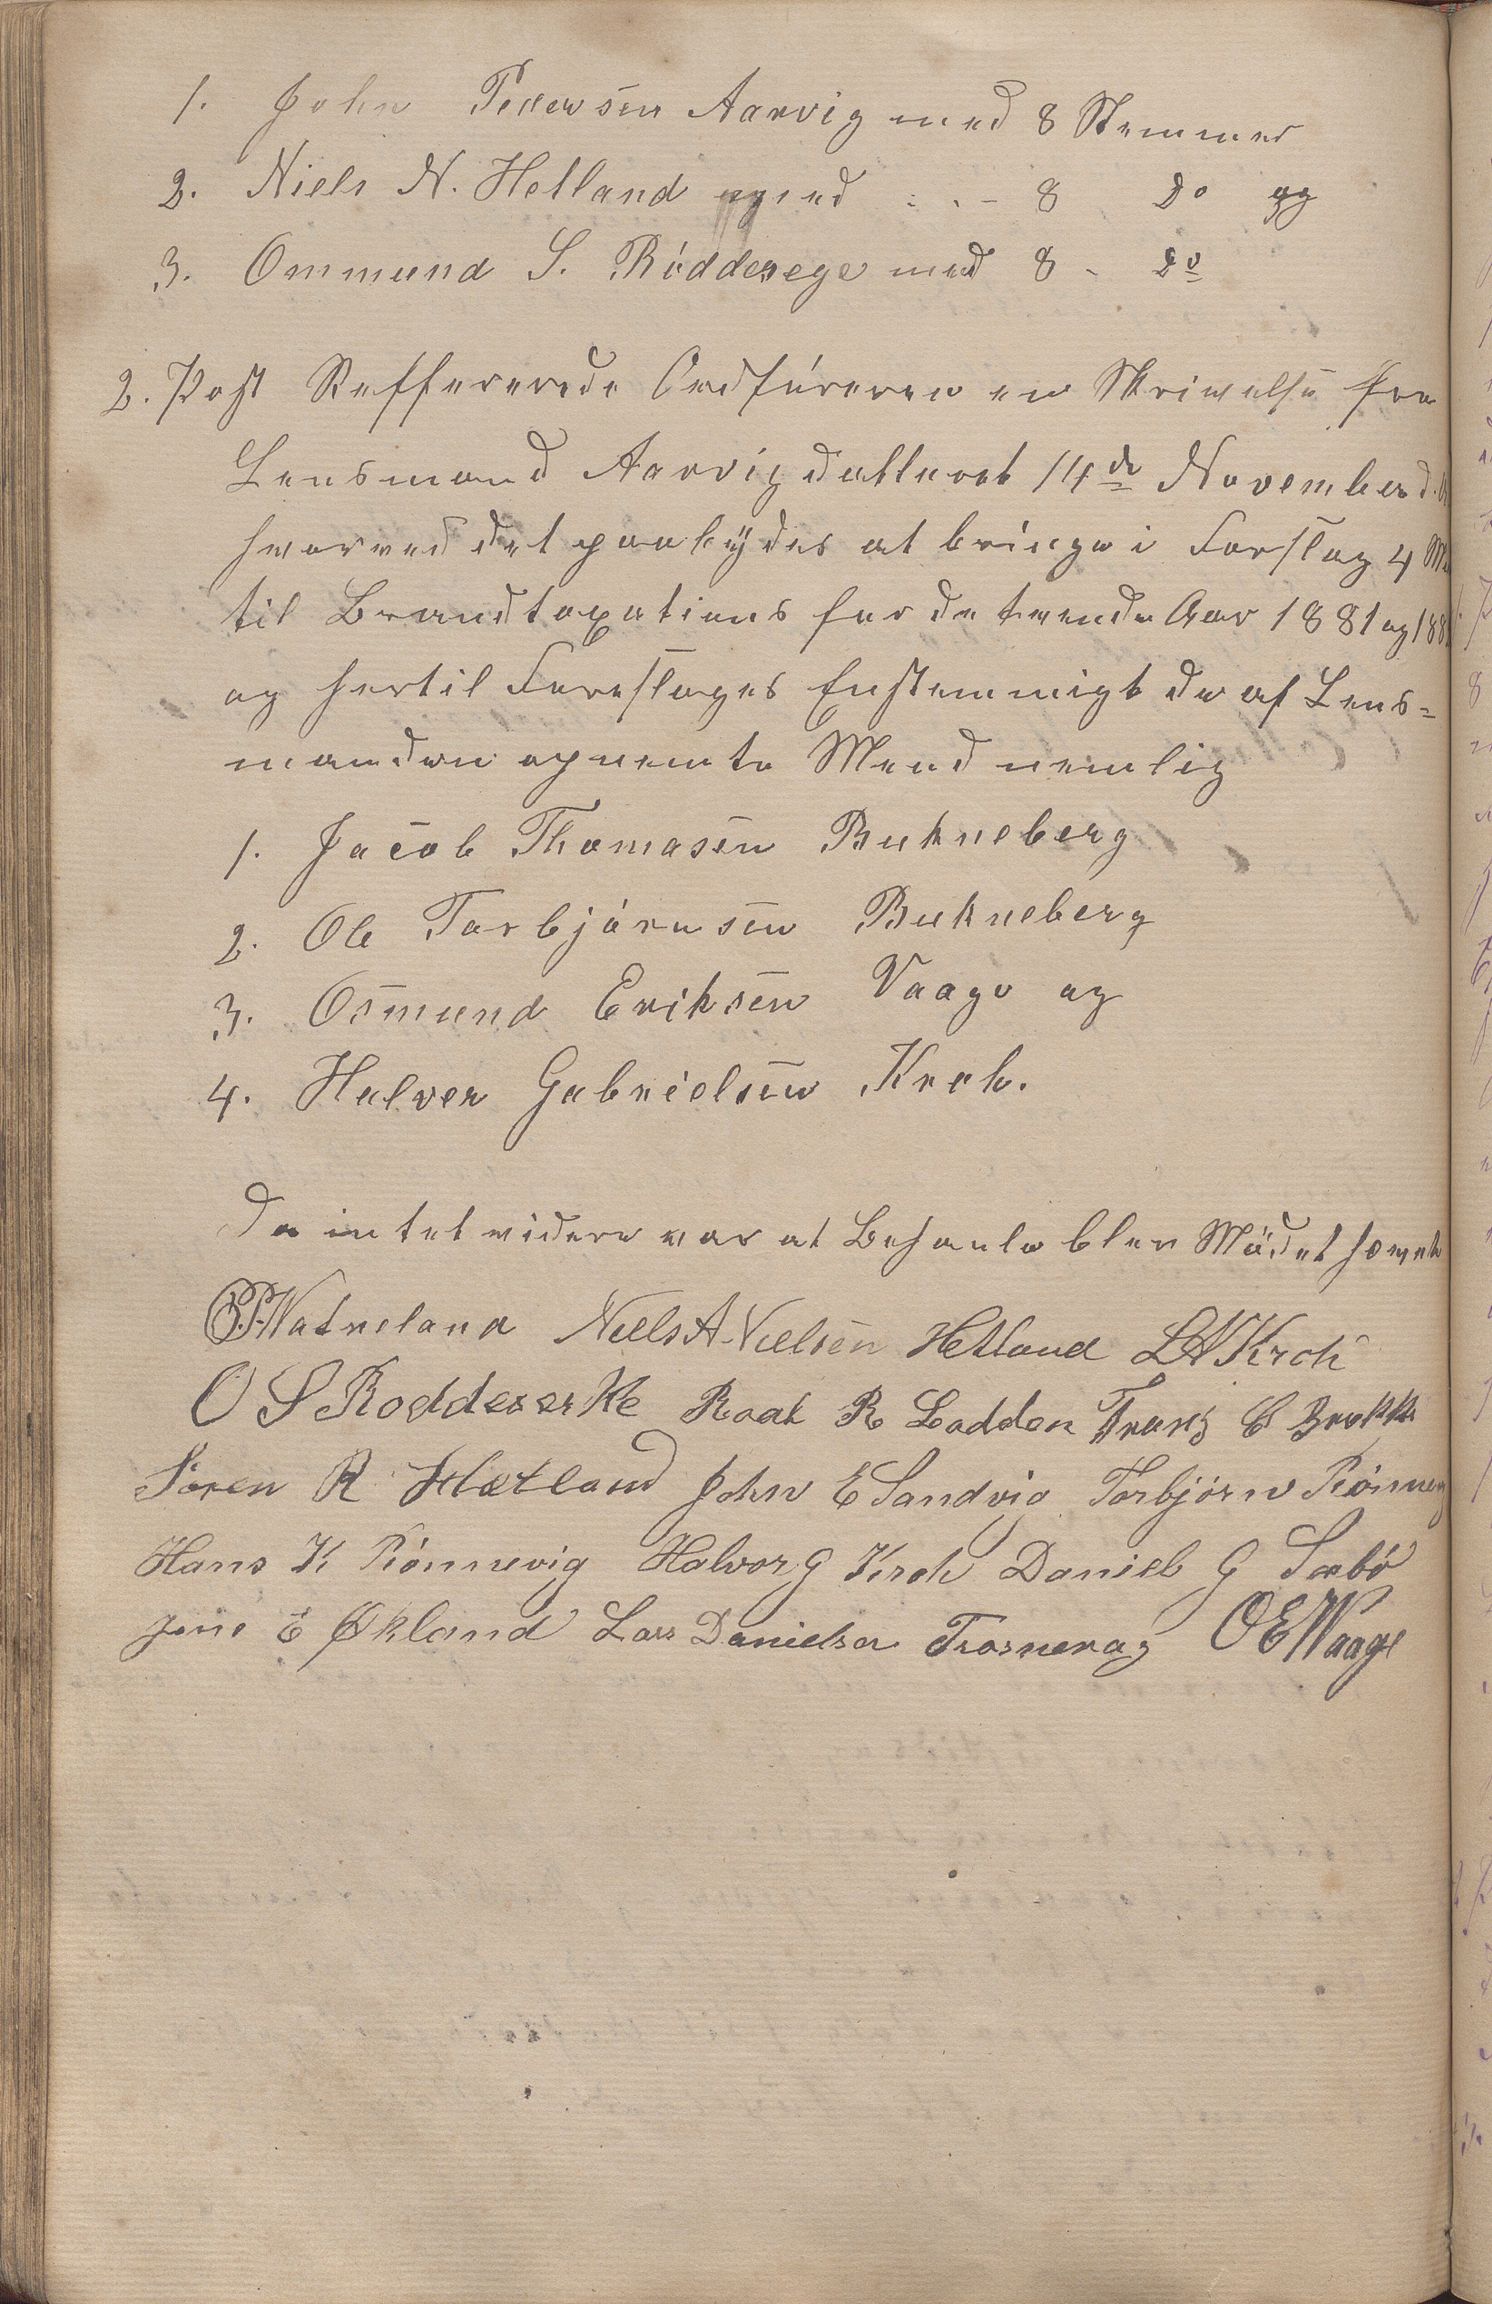 1. John Pedersen Aarvig med 8 Stemmer
2. Niels N. Hetland med : . - 8 do og
3. Ommund S. Röddesege med 8 - do
2. Post Reffererede Ordföreren en Skrivelse fra
Lensmand Aarvig datteret 14de November d.
hvorved det paabydes at bringe i Forslag 4
til Brandtaxations for de tvende Aar 1881 og 188
og hertil Foreslages Enstemmigt de af Lens=
manden opnevnte Mend nemlig
1. Jacob Thomasen Bukneberg
2. Ole Torbjörnsen Bukneberg
3. Osmund Eriksen Vaage og
4. Halvor Gabrielsen Krok.
Da intet videre var at Behanle blev Mödet hævet
Watneland Niels A. Nielsen Hetland L A Krok
O S Roddeserke Roal R Lodden Franz E Brekke
Sören R Hetland John E Sandvig Torbjörn Rönnevig
Hans K Rönnevig Halvor G Krok Daniel G Sæbö
Jens E Økland Lars Danielsen Trosnavag O E Waage